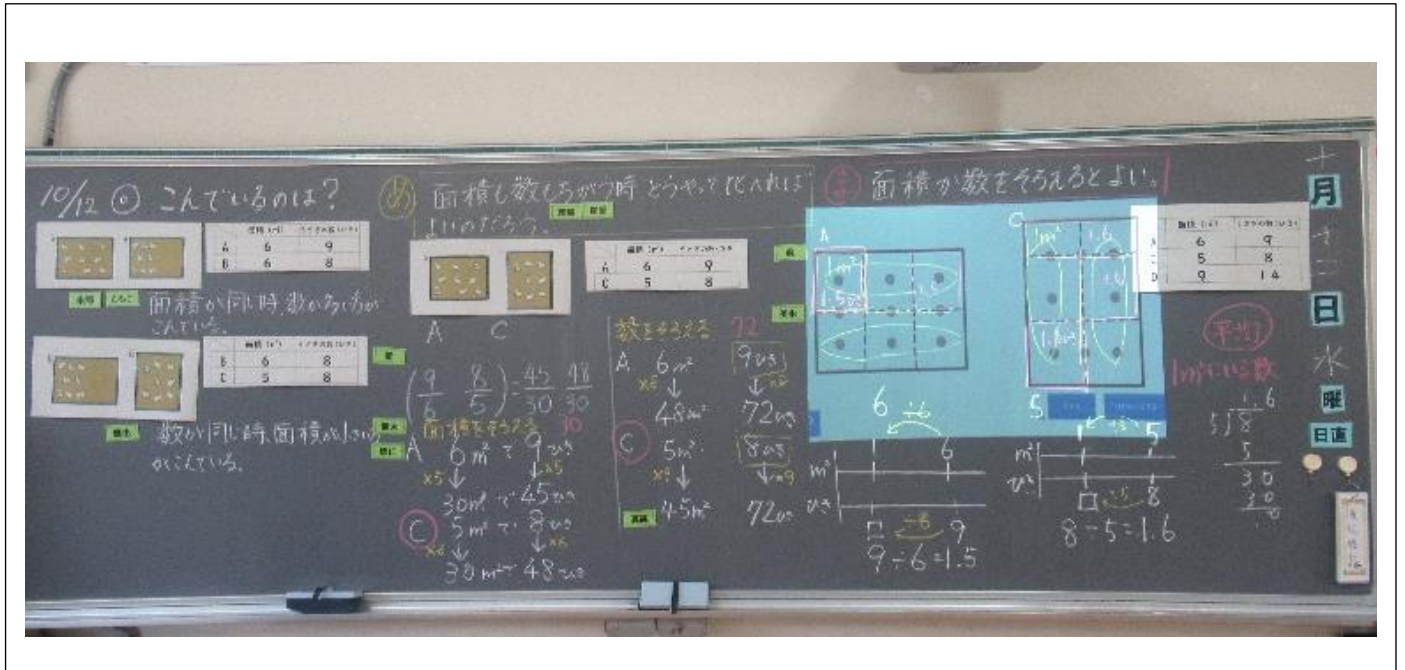 10/12 ◎ こんでいるのは？
面積(m²)
A 6 9
B 6 8
面積が同じ時、数が多い方が
こんでいる。
面積(m²)
B 6 8
C 5 8
数が同じ時、面積が小さい
がこんでいる。
め 面積も数もちがう時どうやって比べれば
よいのだろう。
A C
面積(m²)
A 6 9
C 5 8
(9/6 8/5) = 45/30 48/30
面積をそろえる 30
A 6m²で 9ひき
×5↓ ↓×5
30m²で 45ひき
C 5m²で 8ひき
×6↓ ↓×6
30m²で 48ひき
数をそろえる 72
A 6m² 9ひき
×8↓ ↓×8
48m² 72ひき
C 5m² 8ひき
×9↓ ↓×9
45m² 72ひき
ま 面積か数をそろえるとよい。
A
1m²
1.5ひき
C
1m² 1.6
1.6
1.6ひき
6 ÷6
1 6
m²
ひき
□ ÷6 9
9÷6=1.5
5
1 ÷5 5
m²
ひき
□ ÷5 8
8÷5=1.6
面積(m²)
6 9
5 8
D 9 14
平均
1m²にいる数
1.6
5)8
5
30
30
0
十
月
十二
日
水
曜
日直